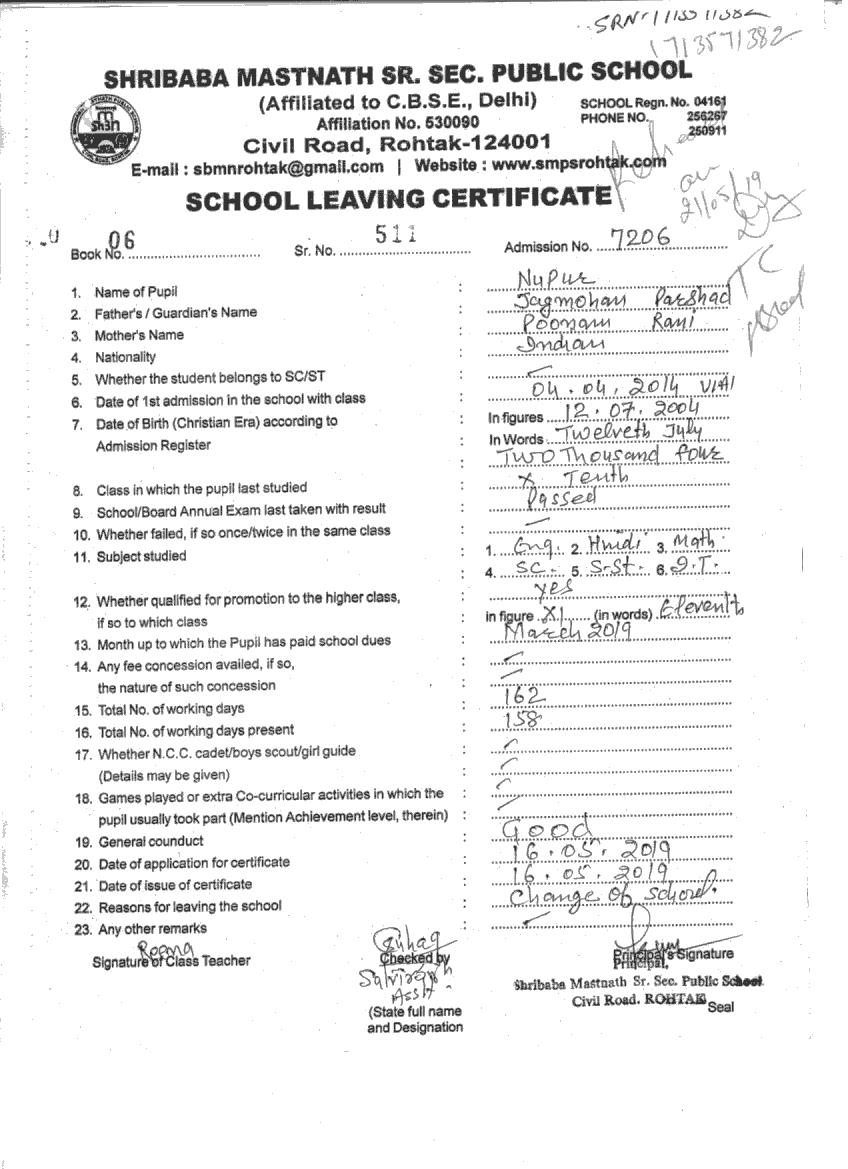 SRN-1713571382
1713571382
SHRIBABA MASTNATH SR. SEC. PUBLIC SCHOOL
(Affiliated to C.B.S.E., Delhi)
SCHOOL Regn. No. 04161
Affiliation No. 530090
PHONE NO. 256267
250911
Civil Road, Rohtak-124001
E-mail : sbmnrohtak@gmail.com | Website : www.smpsrohtak.com
on
21/05/19
SCHOOL LEAVING CERTIFICATE
Book No. 06 Sr. No. 511 Admission No. 7206
TC
1. Name of Pupil : Nupur
2. Father's / Guardian's Name : Jagmohan Parshad
3. Mother's Name : Poonam Rani
4. Nationality : Indian
5. Whether the student belongs to SC/ST :
6. Date of 1st admission in the school with class : 04.04.2014 VIAI
7. Date of Birth (Christian Era) according to : In figures 12.07.2004
Admission Register : In Words Twelveth July
Two Thousand four
8. Class in which the pupil last studied : X Tenth
9. School/Board Annual Exam last taken with result : Passed
10. Whether failed, if so once/twice in the same class :
11. Subject studied : 1. Eng. 2. Hindi 3. Math.
: 4. SC. 5. S.St. 6. I.T.
12. Whether qualified for promotion to the higher class, : yes
if so to which class : in figure XI (in words) Eleventh
13. Month up to which the Pupil has paid school dues : March 2019
14. Any fee concession availed, if so, :
the nature of such concession :
15. Total No. of working days : 162
16. Total No. of working days present : 158
17. Whether N.C.C. cadet/boys scout/girl guide :
(Details may be given) :
18. Games played or extra Co-curricular activities in which the :
pupil usually took part (Mention Achievement level, therein) :
19. General counduct : Good
20. Date of application for certificate : 16.05.2019
21. Date of issue of certificate : 16.05.2019
22. Reasons for leaving the school : Change of School.
23. Any other remarks :
Signature of Class Teacher Checked by Principal's Signature
Principal,
Shribaba Mastnath Sr. Sec. Public School
Asstt.
Civil Road. ROHTAK
Seal
(State full name
and Designation